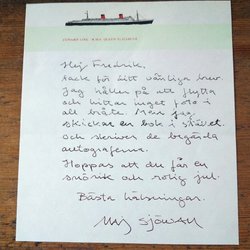 CUNARD LINE R.M.S. QUEEN ELIZABETH
Hej Fredrik,
tack för ditt vänliga brev.
Jag håller på att flytta
och hittar inget foto i
all bråte. Men jag
skickar en bok i stället
och skriver de begärda
autograferna.
Hoppas att du får en
snörik och rolig jul.
Bästa hälsningar.
Maj Sjöwall